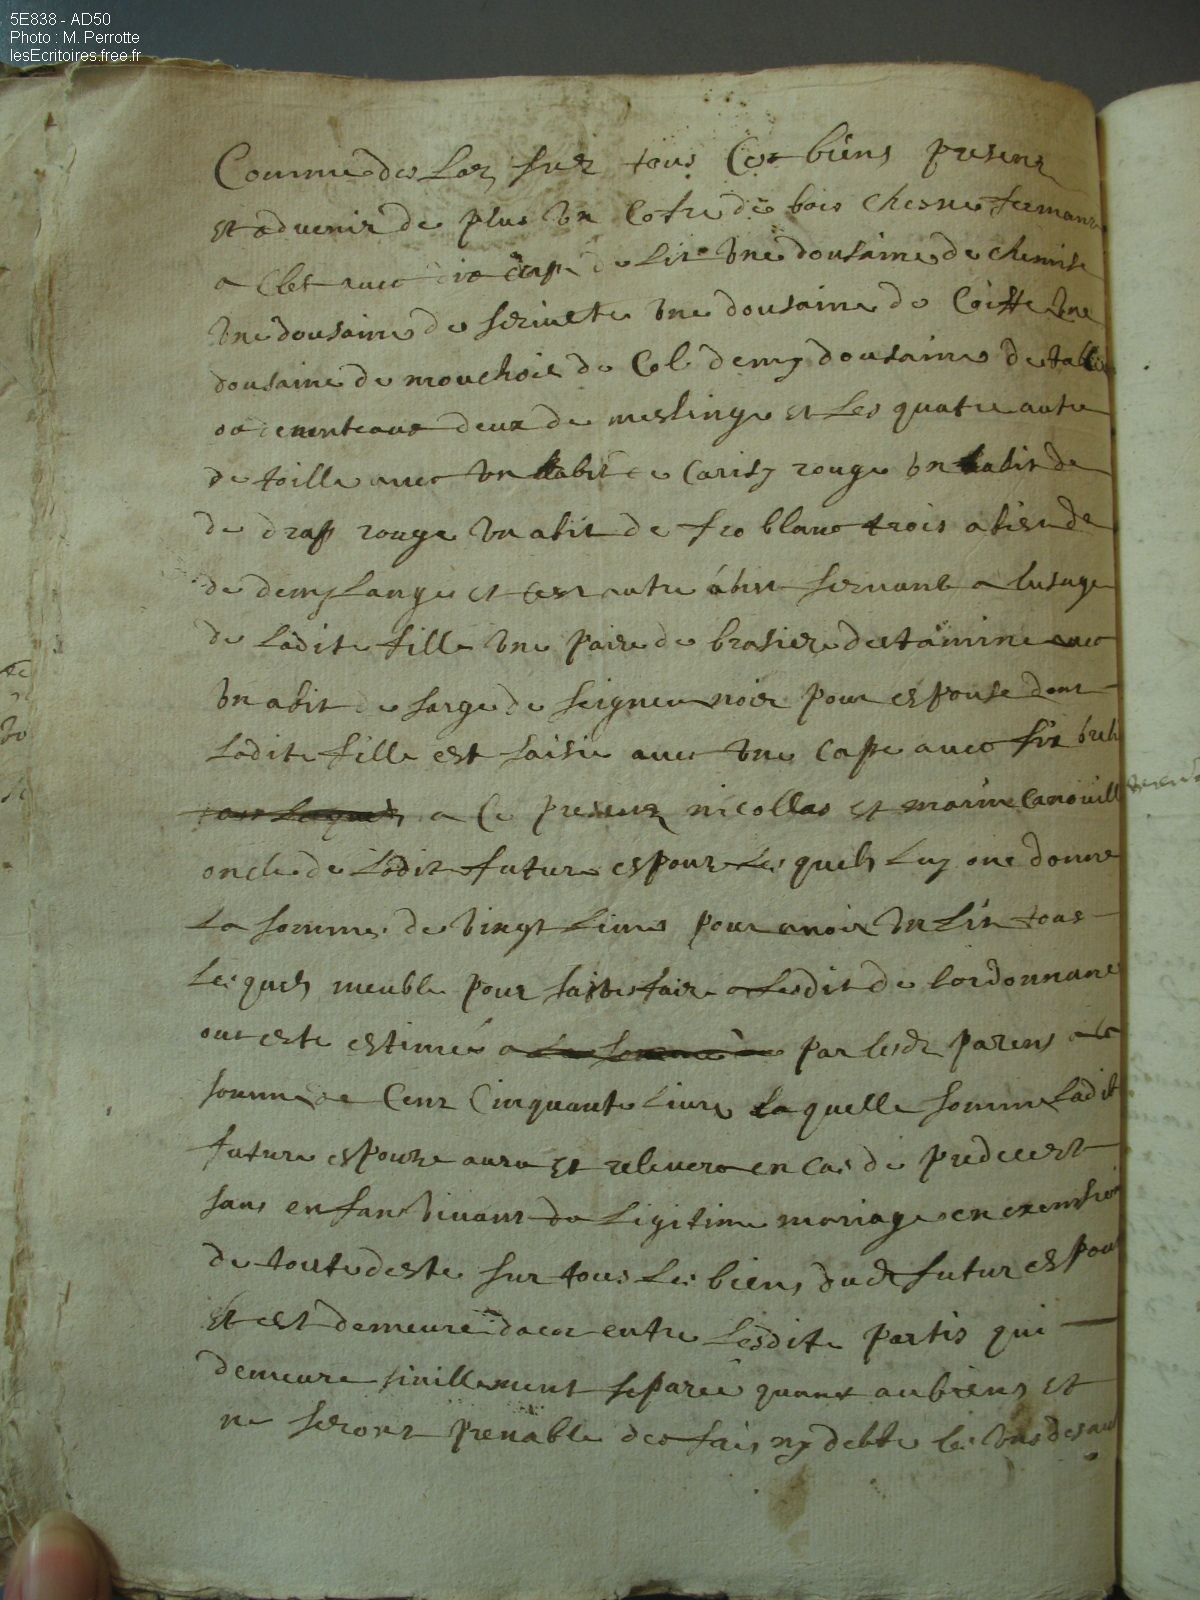 5E838 - AD50
Photo : M. Perrotte
lesEcritoires.free.fr
Comme des Lors sur tous Ces biens presens
Et advenir de plus Un Cofre de bois chesne fermant
a Clef avec six drap de Lit Une dousaine de chemise
Une dousaine de serviete Une dousaine de Coiffe Une
dousaine de mouchois de Col demy dousaine de
deux de meslinge Et Les quatre autre
de toille avec Un habit de Carisy rouge Un habit de
de drap rouge Un abit de fro blanc trois abist de
de demy Lange et ces autre abist servant a lusage
de Ladite fille Une paire de brasiere destamine avec
Un abit de sarge de seigneu noir pour espouse dont
Ladite fille est saisie avec Une Cape avec six
a Ce presens nicollas Et marin Canouill
oncle de Ladit future espouze Les quels Luy one donne
La somme de Vingt Livres pour avoir Un Lit tous
Les quels meuble pour satisfaire a Lesdit de Lordonnance
ont este estimés a par lesdt parens a la
somme de Cent Cinquante Livre La quelle somme Ladit
future espouze aura Et relevera en Cas de predecest
sans enfan Vivant du Ligitime mariage en exemsion
de toute deste sur tous Les biens dudt futur espou
Et est demeure dacor entre Lesdite partis qui
demeure sivillement separée quant au biens et
ne seront prenable des fais ny debte les Uns des au